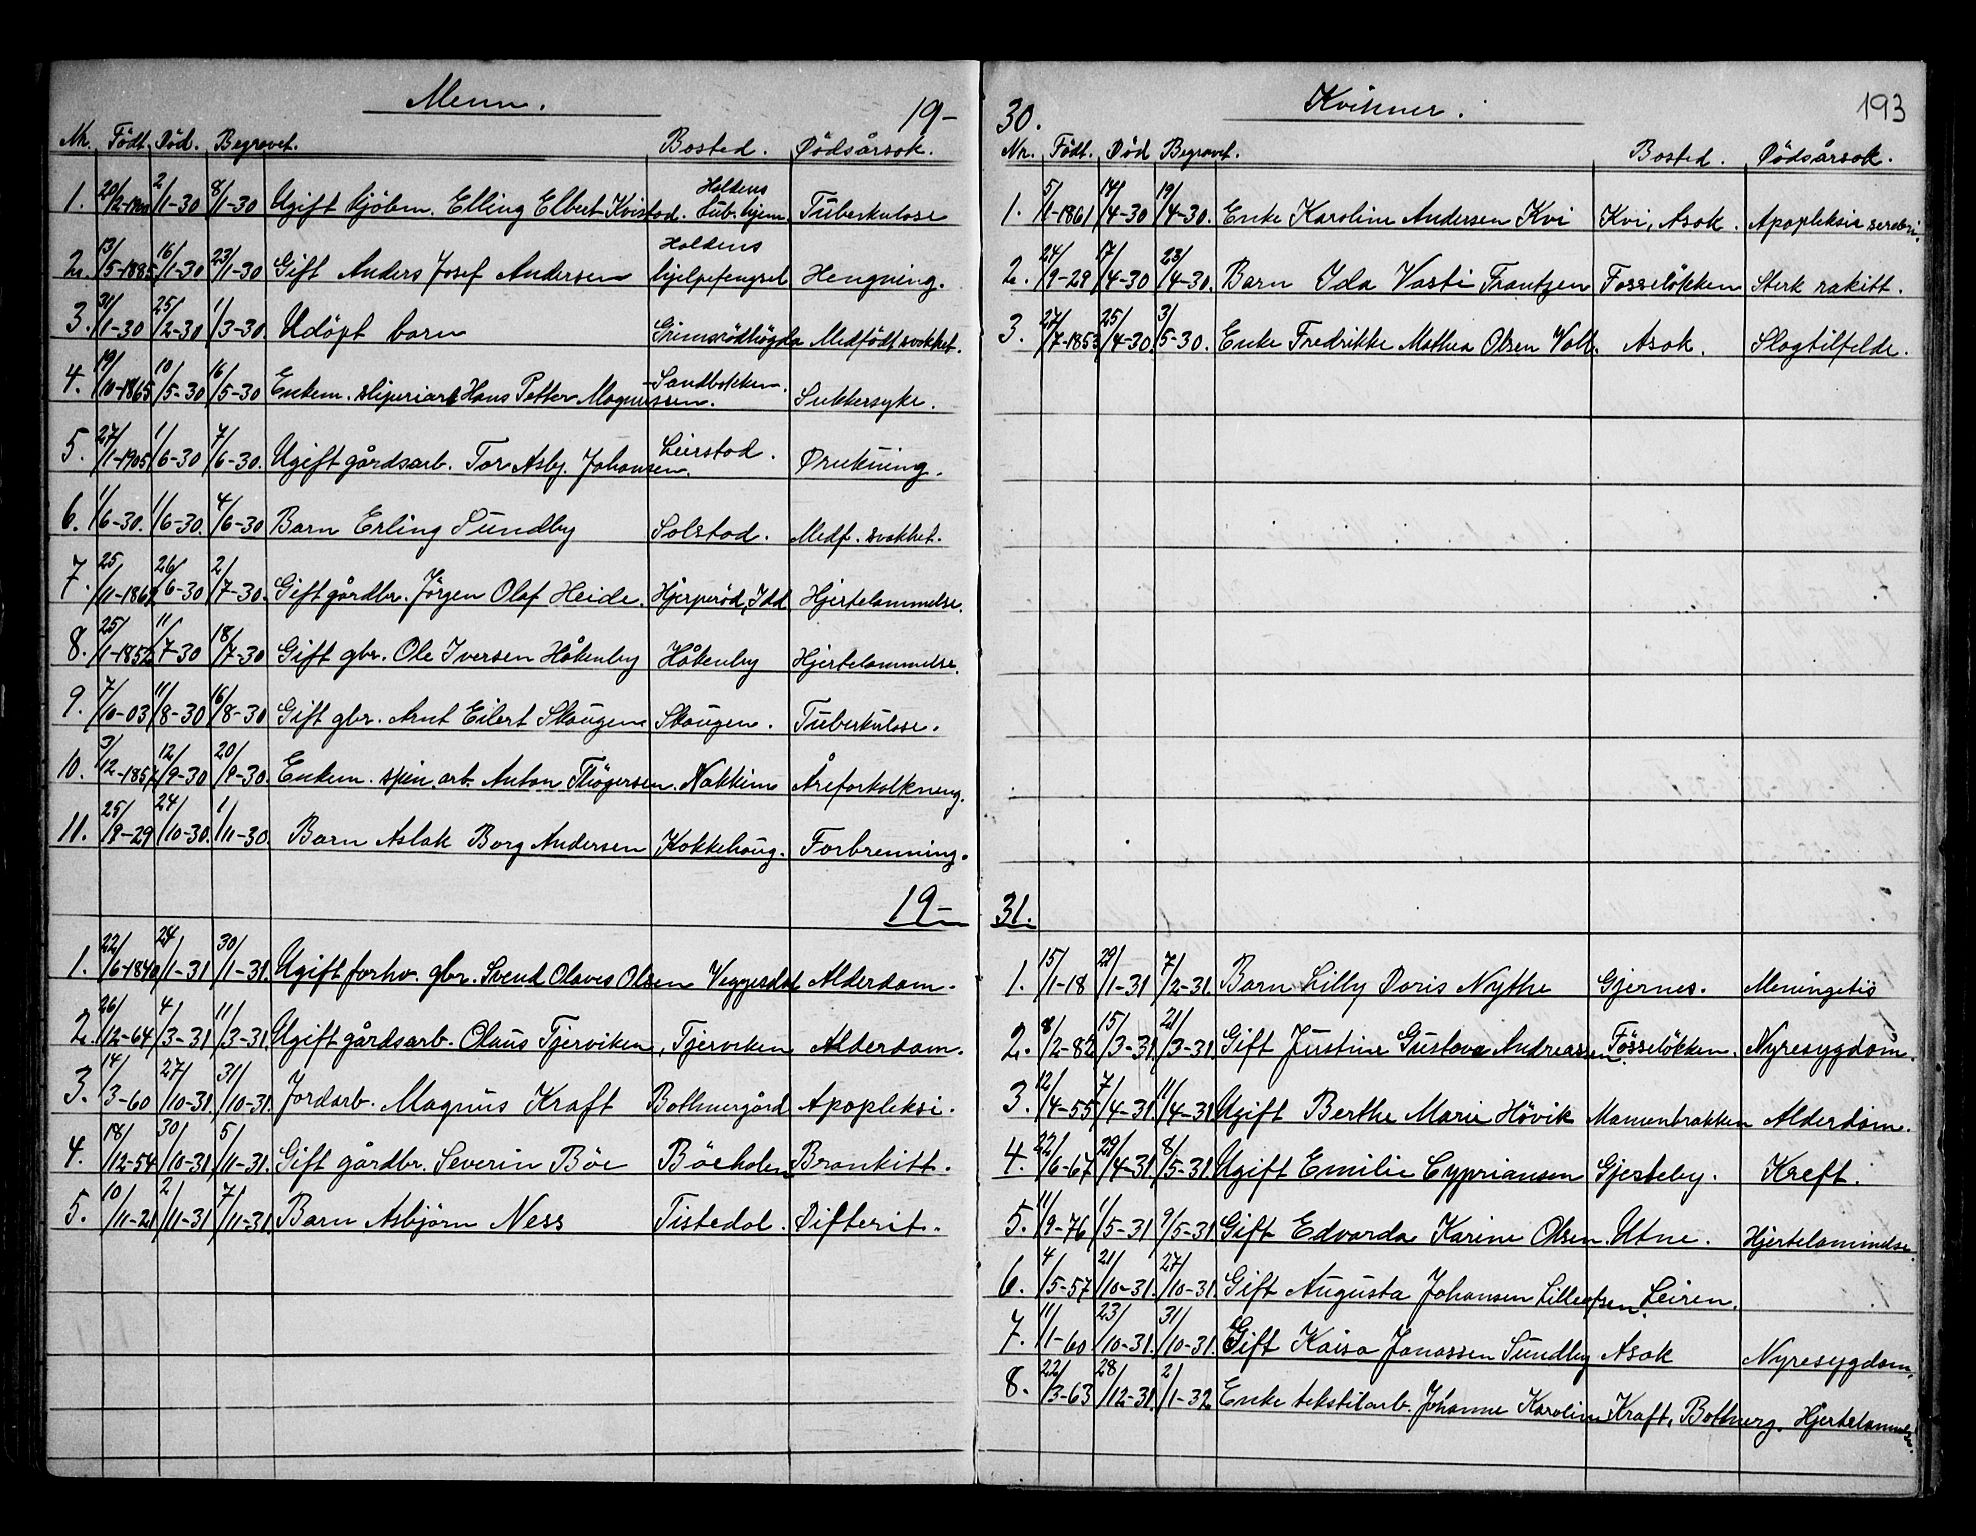 Menn. 19-
Nr. Født. Død. Begravet. Bosted. Dødsårsak.
1. 20/2-1900 2/1-30 8/1-30 Ugift kjöbm. Elling Elbert Kvistad. Haldens Tub.hjem. Tuberkulose
2. 13/5-1885 16/1-30 23/1-30 Gift Anders Josef Andersen Haldens hjelpefengsel Hengning.
3. 31/1-30 25/2-30 1/3-30. Udöpt barn Grimsrödhögda Medfödt svakhet.
4. 19/10-1865 10/5-30 16/5-30 Enkem. sliperiarb Hans Petter Magnussen. Sandbakken. Sukkersyke.
5. 27/1-1905 1/6-30 7/6-30. Ugift gårdsarb. Tor Asbj. Johansen. Leirstad. Drukning.
6. 1/6-30. 1/6-30. 4/6-30 Barn Erling Sundby Solstad. Medf. svakhet.
7. 25/11-186 26/6-30 2/7-30. Gift gårdbr. Jörgen Olaf Heide. Hjerperöd, Idd Hjertelammelse.
8. 25/1-1852 11/7-30 18/7-30 Gift gbr. Ole Iversen Håkenby Håkenby Hjertelammelse.
9. 7/10-03 11/8-30 16/8-30 Gift gbr. Arnt Eilert Skaugen Skaugen. Tuberkulose.
10. 3/12-185 12/9-30 20/9-30. Enkem. spin. arb. Anton Thögersen. Nakkim Åreforkalkning.
11. 25/9-29 24/10-30. 1/11-30. Barn Aslak Borg Andersen Kokkehaug. Forbrenning.
19-
1. 22/6-1840 24/1-31 30/1-31. Ugift forhv. gbr. Svend Olaves Olsen Veggesdal Alderdom.
2. 26/12-64 4/3-31 11/3-31. Ugift gårdsarb. Olaus Tjerviken, Tjerviken Alderdom.
3. 14/3-60 27/10-31. 31/10-31. Jordarb. Magnus Kraft Bothnergård Apopleksi.
4. 18/12-54 30/10-31. 5/11-31. Gift gårdbr. Severin Böe Böeholen Bronkitt.
5. 10/11-21 2/11-31 7/11-31. Barn Asbjörn Ness Tistedal. Difterit.
30. Kvinner. 193
Nr. Født. Død Begravet. Bosted. Dødsårsak.
1. 5/1-1861 14/4-30 19/4-30. Enke Karoline Andersen Kvi Kvi, Asak. Apopleksia serebri.
2. 24/9-29 17/4-30 23/4-30. Barn Ida Vasti Frantzen Fosseløkken Sterk rakitt.
3. 27/7-1853 25/4-30. 3/5-30. Enke Fredrikke Mathea Olsen Voll. Asak. Slagtilfelde.
31.
1. 15/1-18 29/1-31 7/2-31. Barn Lilly Doris Nythe Gjernes. Meningetis
2. 8/2-82 15/3-31 21/3-31 Gift Justine Gustava Andreassen Fösselökken. Nyresygdom.
3. 12/4-55 7/4-31. 11/4-31 Ugift Berthe Marie Hövik Mamenbrakken Alderdom.
4. 22/6-67 29/4-31. 8/5-31. Ugift Emilie Cypriansen Gjesteby. Kreft.
5. 11/9-76 1/5-31 9/5-31 Gift Edvarda Karine Olsen. Utne. Hjertelammelse.
6. 4/5-57 21/10-31. 27/10-31 Gift Augusta Johansen Leiren.
7. 11/1-60 23/10-31. 31/10-31. Gift Kaisa Jonassen Sundby Asak Nyresygdom.
8. 22/3-63 28/12-31. 2/1-32 Enke tekstilarb. Johanne Karoline Kraft, Bothnerg. Hjertelammelse.